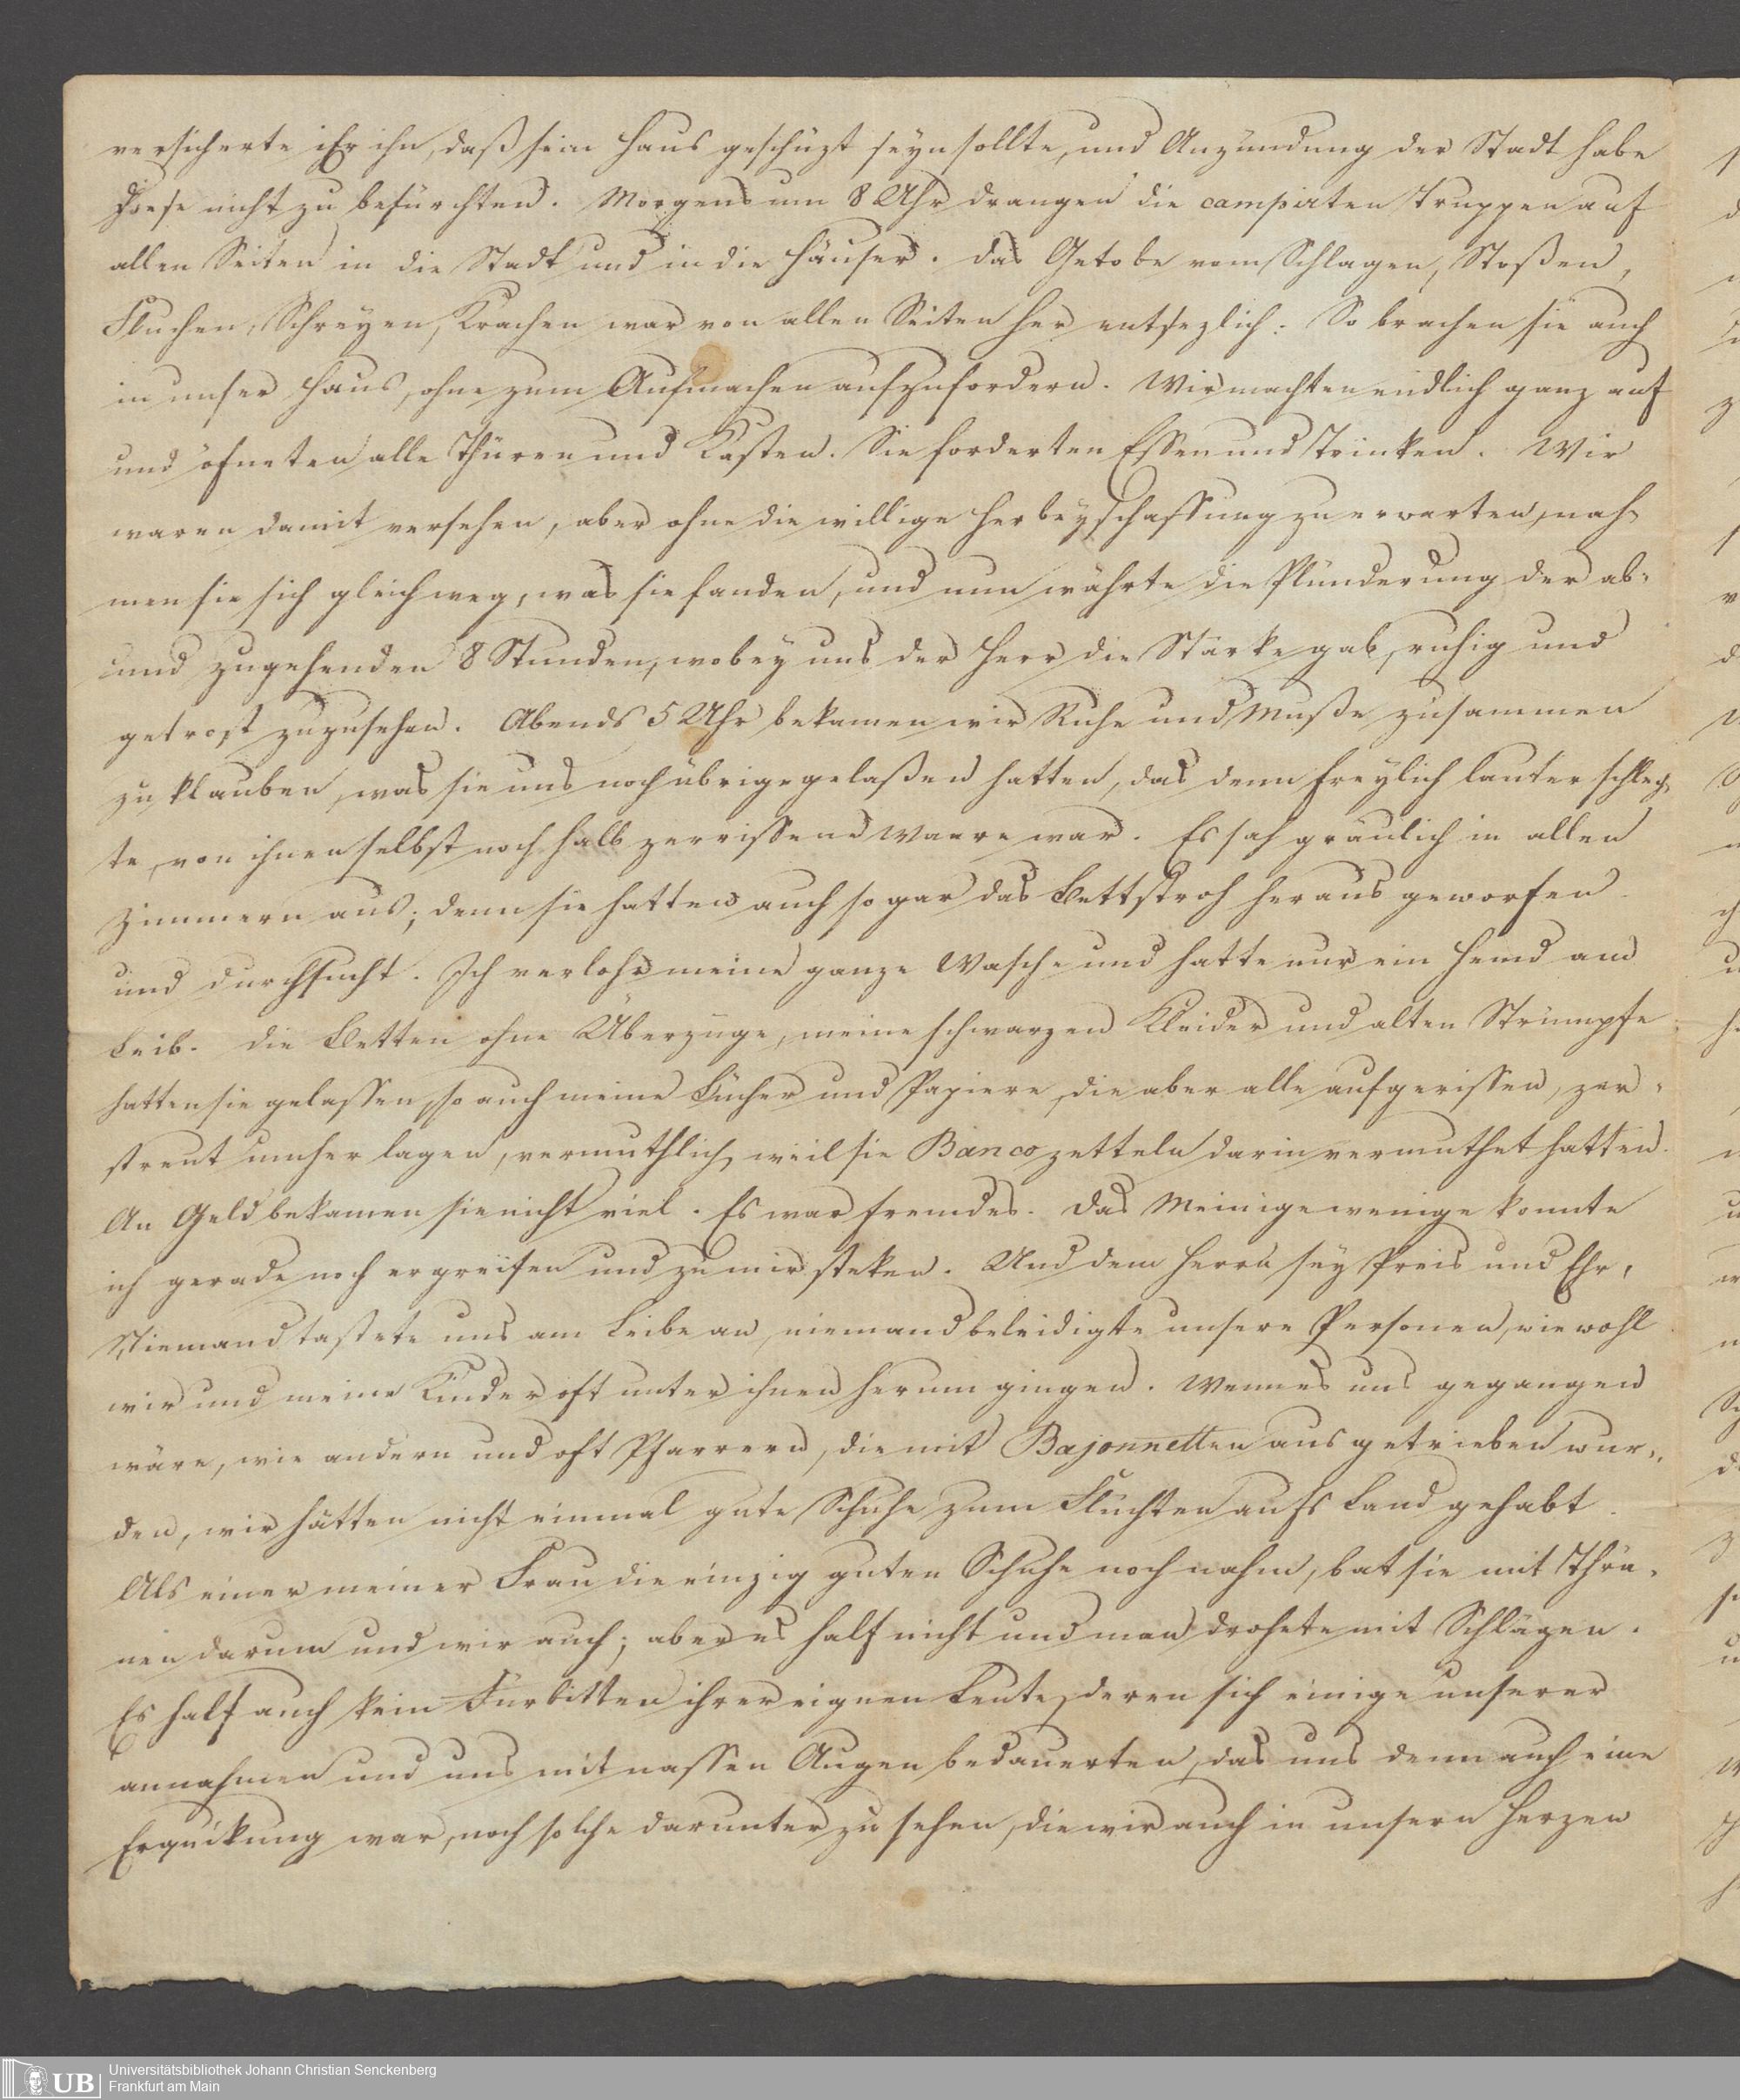 versicherte Er ihn, daß sein Haus geschüzt seyn sollte, und Anzündung der Stadt habe
Diese nicht zu befürchten. Morgens um 8 Uhr drangen die campirten Truppen auf
allen Seiten in die Stadt und in die Häuser. Das Getobe vom Schlagen, Stoßen,
Fluchen, Schreyen, Krachen war von allen Seiten her entsezlich. So brachen sie auch
in unser Haus, ohne zum Aufmachen aufzufordern. Wir machten endlich ganz auf
und öfneten alle Thüren und Kästen. Sie forderten Essen und Trinken. Wir
waren damit versehen, aber ohne die willige Herbeyschaffung zu erwarten, nah-
men sie sich gleich weg, was sie fanden, und nun währte die Plünderung der ab-
und zugehenden 8 Stunden, wobey uns der Herr die Stärke gab, ruhig und
getrost zuzusehen. Abends 5 Uhr bekamen wir Ruhe und Muße zusammen
zu klauben, was sie uns noch übrig gelaßen hatten, das denn freylich lauter schlech-
te, von ihnen selbst noch halb zerrissene Waare war. Es sah gräulich in allen
Zimmern aus; denn sie hatten auch sogar das Bettstroh heraus geworfen
und durchsucht. Ich verlohr meine ganze Wäsche und hatte nur ein Hemd am
Leib. Die Betten ohne Überzüge, meine schwarzen Kleider und alten Strümpfe
hatten sie gelassen, so auch meine Bücher und Papiere, die aber alle aufgerissen, zer-
streut umher lagen, vermuthlich, weil sie Bancozetteln darin vermuthet hatten.
An Geld bekamen sie nicht viel. Es war fremdes. Das Meinige wenige konnte
ich gerade noch ergreifen und zu mir steken. Und dem Herrn sey Preis und Ehr,
Niemand tastete uns am Leibe an, niemand beleidigte unsere Personen, wie wohl
wir und meine Kinder oft unter ihnen herum gingen. Wenn es uns gegangen
wäre, wie andern und oft Pfarrern, die mit Bajonnetten ausgetrieben wur-
den, wir hätten nicht einmal gute Schuhe zum Flüchten aufs Land gehabt.
Als einer meiner Frau die einzig guten Schuhe noch nahm, bat sie mit Thrä-
nen darum und wir auch; aber es half nicht und man drohete mit Schlägen.
Es half auch kein Fürbitten ihrer eignen Leute, deren sich einige unserer
annahmen und uns mit nassen Augen bedauerten, das uns denn auch eine
Erquikung war, noch solche darunter zu sehen, die wir auch in unsern Herzen
UB
Universitätsbibliothek Johann Christian Senckenberg
Frankfurt am Main